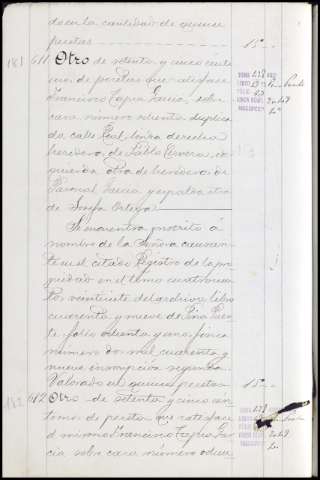 do en la cantidad de quince
pesetas 15"
181 611 Otro de setenta y cinco cénti
mos de pesetas que satisface
Francisco Tapia García, sobre
casa número ochenta duplica
do, calle Real, linda derecha
herederos de Pablo Cervera, iz
quierda otra de herederos de
Pascual García y espalda otra
de Josefa Ortega
Se encuentra inscrito á
nombre de la Señora causan
te en el citado Registro de la pro
piedad en el tomo cuatrocien
tos veintisiete del archivo, libro
cuarenta y nueve de
folio ochenta y uno, finca
número dos mil cuarenta y
nueve, inscripción segunda.
Valorado en quince pesetas 15"
182 612 Otro de setenta y cinco cén
timos de peseta que satisface
el mismo Francisco Tapia Gar
cía sobre casa número ochen